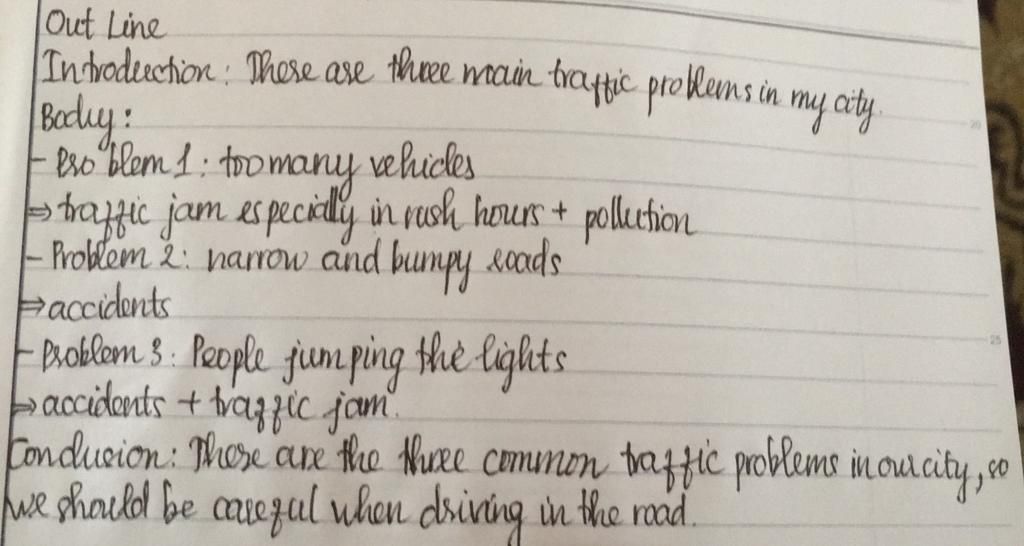 Out Line
Introduction: There are three main traffic problems in my city.
Body:
- Problem 1: too many vehicles
⇒ traffic jam especially in rush hours + pollution
- Problem 2: narrow and bumpy roads
⇒ accidents
- Problem 3: People jumping the lights
⇒ accidents + traffic jam.
Conclusion: These are the three common traffic problems in our city, so
we should be careful when driving in the road.
20
25